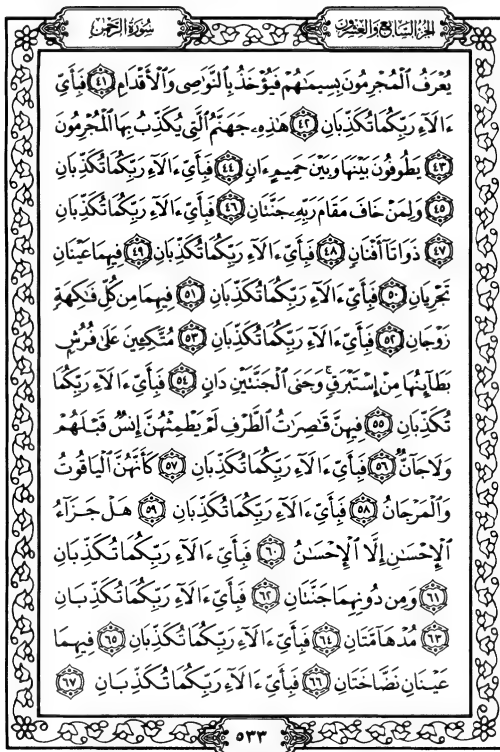 سُورَةُ الرَّحْمٰن
الجُزْءُ السَّابِعُ وَالْعِشْرُونَ
يُعْرَفُ الْمُجْرِمُونَ بِسِيمَاهُمْ فَيُؤْخَذُ بِالنَّوَاصِي وَالْأَقْدَامِ ﴿٤١﴾ فَبِأَيِّ
ءَالَآءِ رَبِّكُمَا تُكَذِّبَانِ ﴿٤٢﴾ هَٰذِهِۦ جَهَنَّمُ الَّتِي يُكَذِّبُ بِهَا الْمُجْرِمُونَ
﴿٤٣﴾ يَطُوفُونَ بَيْنَهَا وَبَيْنَ حَمِيمٍ ءَانٍ ﴿٤٤﴾ فَبِأَيِّ ءَالَآءِ رَبِّكُمَا تُكَذِّبَانِ
﴿٤٥﴾ وَلِمَنْ خَافَ مَقَامَ رَبِّهِۦ جَنَّتَانِ ﴿٤٦﴾ فَبِأَيِّ ءَالَآءِ رَبِّكُمَا تُكَذِّبَانِ
﴿٤٧﴾ ذَوَاتَآ أَفْنَانٍ ﴿٤٨﴾ فَبِأَيِّ ءَالَآءِ رَبِّكُمَا تُكَذِّبَانِ ﴿٤٩﴾ فِيهِمَا عَيْنَانِ
تَجْرِيَانِ ﴿٥٠﴾ فَبِأَيِّ ءَالَآءِ رَبِّكُمَا تُكَذِّبَانِ ﴿٥١﴾ فِيهِمَا مِن كُلِّ فَٰكِهَةٍ
زَوْجَانِ ﴿٥٢﴾ فَبِأَيِّ ءَالَآءِ رَبِّكُمَا تُكَذِّبَانِ ﴿٥٣﴾ مُتَّكِـِٔينَ عَلَىٰ فُرُشٍ
بَطَآئِنُهَا مِنْ إِسْتَبْرَقٍ ۚ وَجَنَى الْجَنَّتَيْنِ دَانٍ ﴿٥٤﴾ فَبِأَيِّ ءَالَآءِ رَبِّكُمَا
تُكَذِّبَانِ ﴿٥٥﴾ فِيهِنَّ قَٰصِرَٰتُ الطَّرْفِ لَمْ يَطْمِثْهُنَّ إِنسٌ قَبْلَهُمْ
وَلَا جَآنٌّ ﴿٥٦﴾ فَبِأَيِّ ءَالَآءِ رَبِّكُمَا تُكَذِّبَانِ ﴿٥٧﴾ كَأَنَّهُنَّ الْيَاقُوتُ
وَالْمَرْجَانُ ﴿٥٨﴾ فَبِأَيِّ ءَالَآءِ رَبِّكُمَا تُكَذِّبَانِ ﴿٥٩﴾ هَلْ جَزَآءُ
الْإِحْسَٰنِ إِلَّا الْإِحْسَٰنُ ﴿٦٠﴾ فَبِأَيِّ ءَالَآءِ رَبِّكُمَا تُكَذِّبَانِ
﴿٦١﴾ وَمِن دُونِهِمَا جَنَّتَانِ ﴿٦٢﴾ فَبِأَيِّ ءَالَآءِ رَبِّكُمَا تُكَذِّبَانِ
﴿٦٣﴾ مُدْهَآمَّتَانِ ﴿٦٤﴾ فَبِأَيِّ ءَالَآءِ رَبِّكُمَا تُكَذِّبَانِ ﴿٦٥﴾ فِيهِمَا
عَيْنَانِ نَضَّاخَتَانِ ﴿٦٦﴾ فَبِأَيِّ ءَالَآءِ رَبِّكُمَا تُكَذِّبَانِ ﴿٦٧﴾
٥٣٣